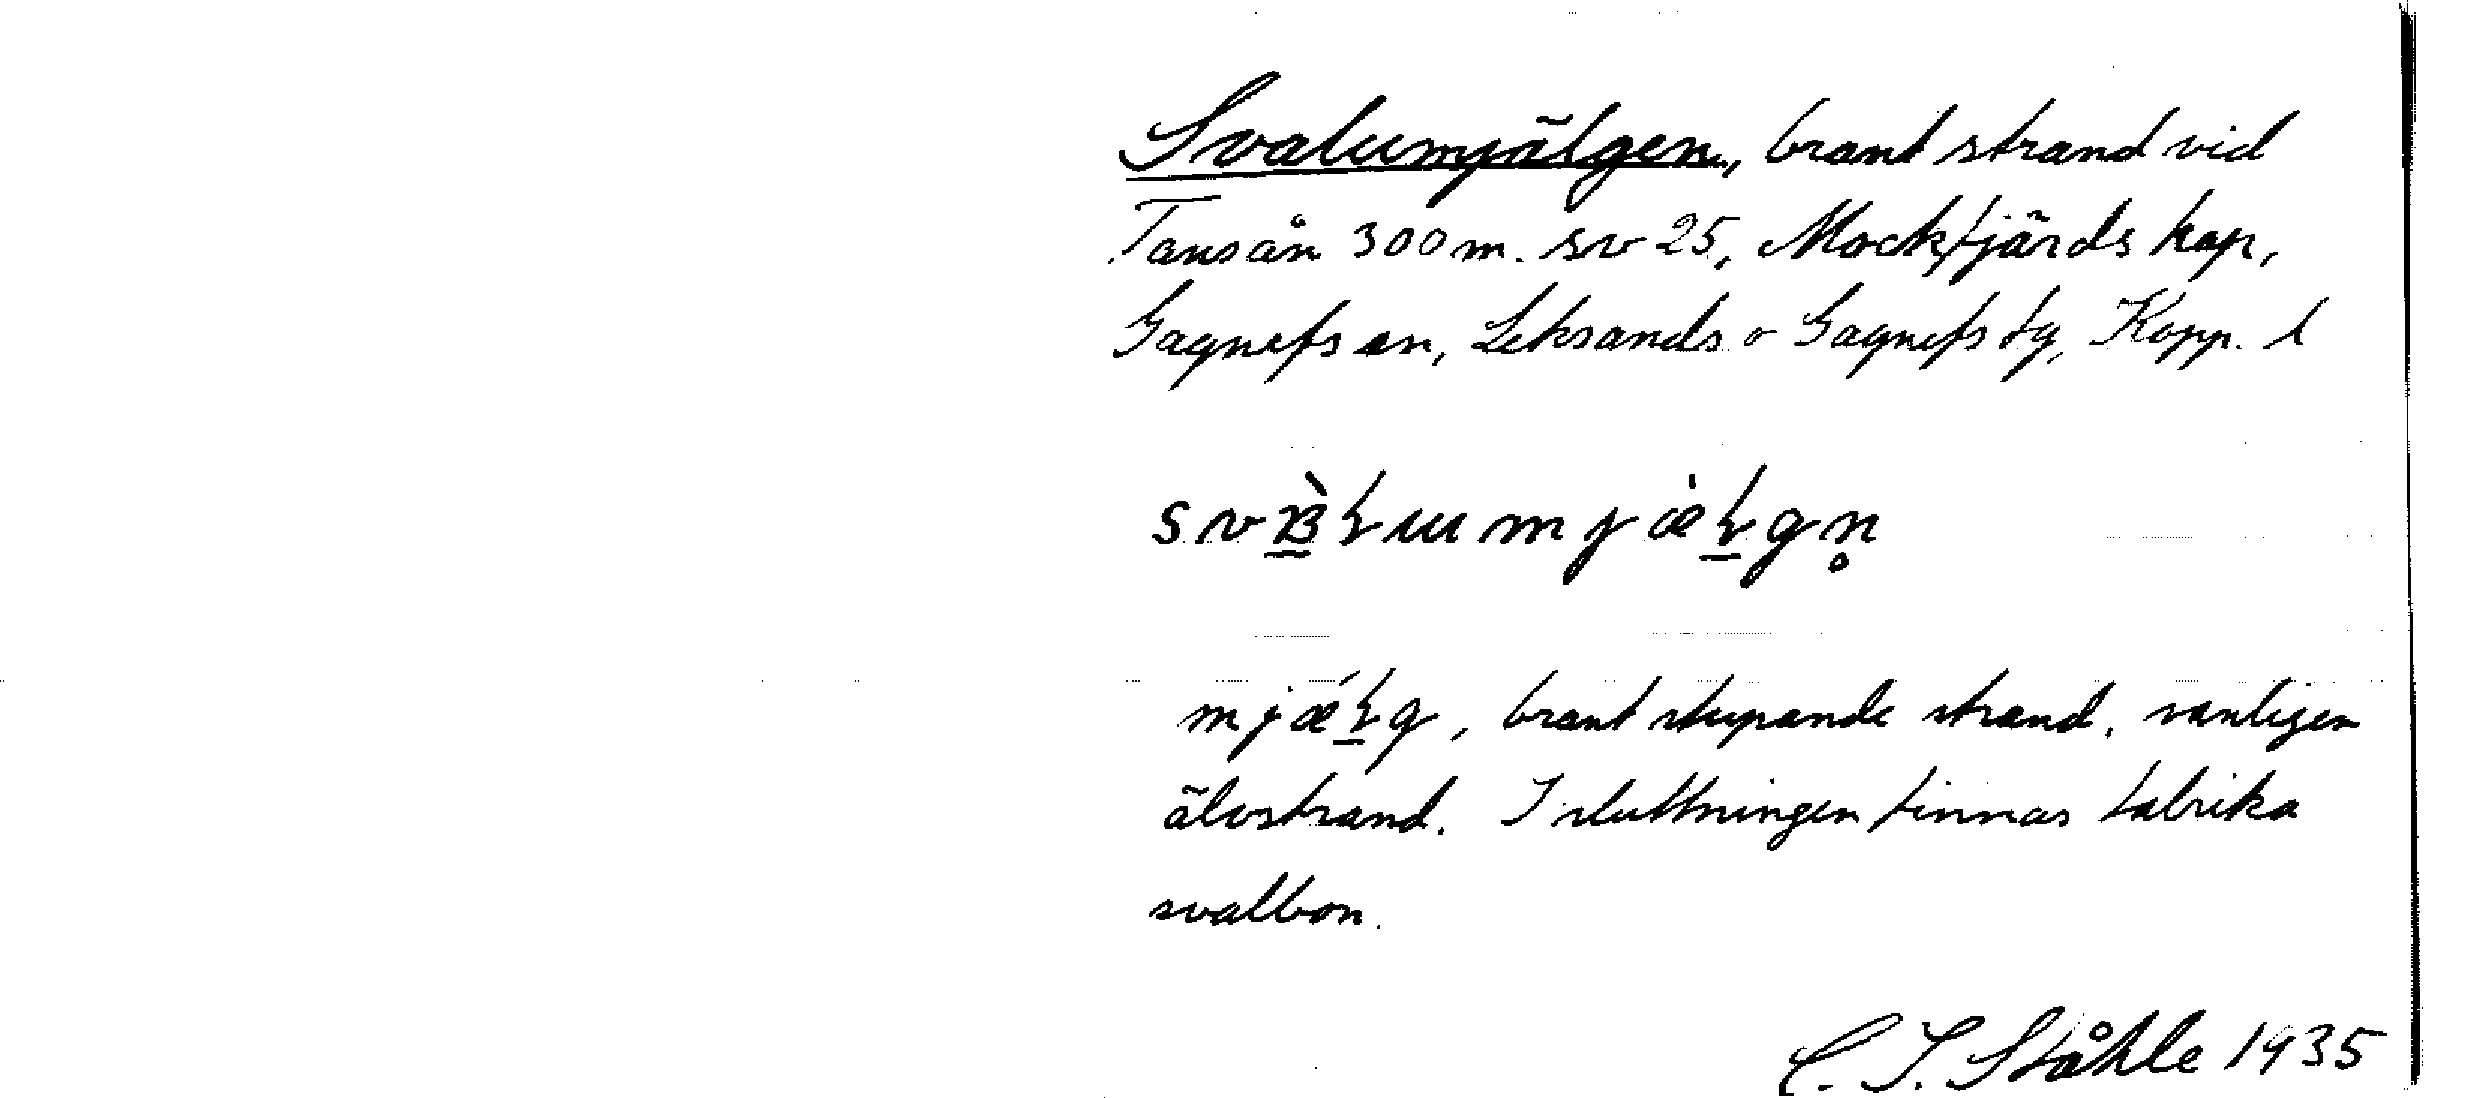 Svalumjälgen, brant strand vid
Tansån 300 m. sv 25, Mockfjärds kap,
Gagnefs sn, Leksands o Gagnefs tg, Kopp. l
mjælg, brant stupande strand, vanligen
älvstrand. I sluttningen finnas talrika
svalbon.
C. I. Ståhle 1935